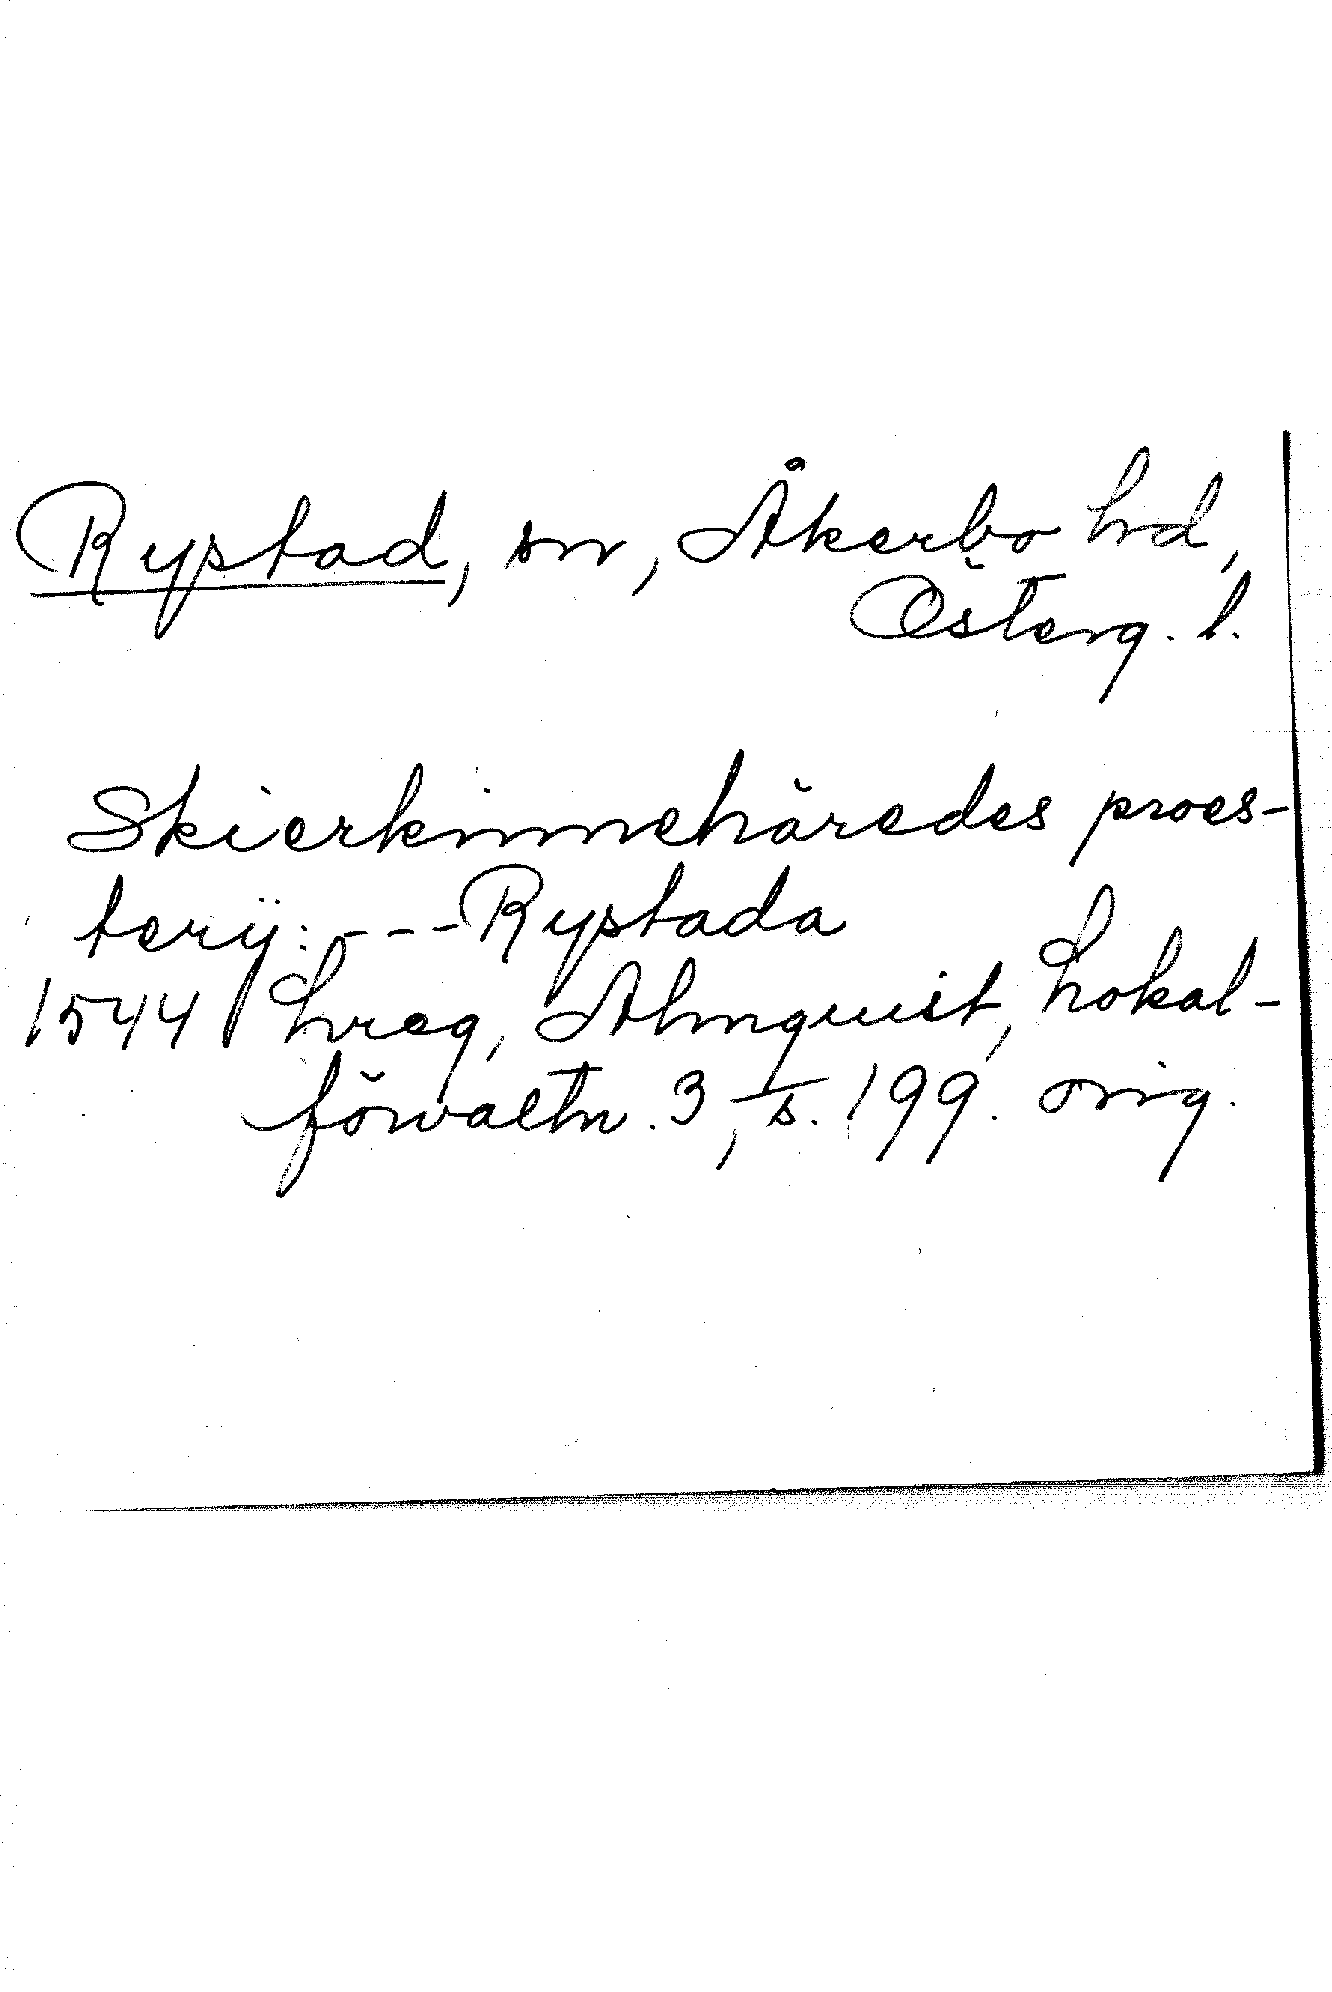 Rystad, sn, Åkerbo hd,
Österg. l.
Skierkinnehäredes proes-
terij: --- Rystada
1544 hreg, Almquist, Lokal-
förvaltn. 3, s. 199. orig.